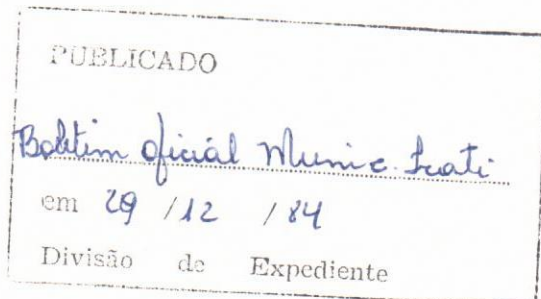 PUBLICADO
Boletim oficial Munic. Irati
em 29 / 12 / 84
Divisão de Expediente